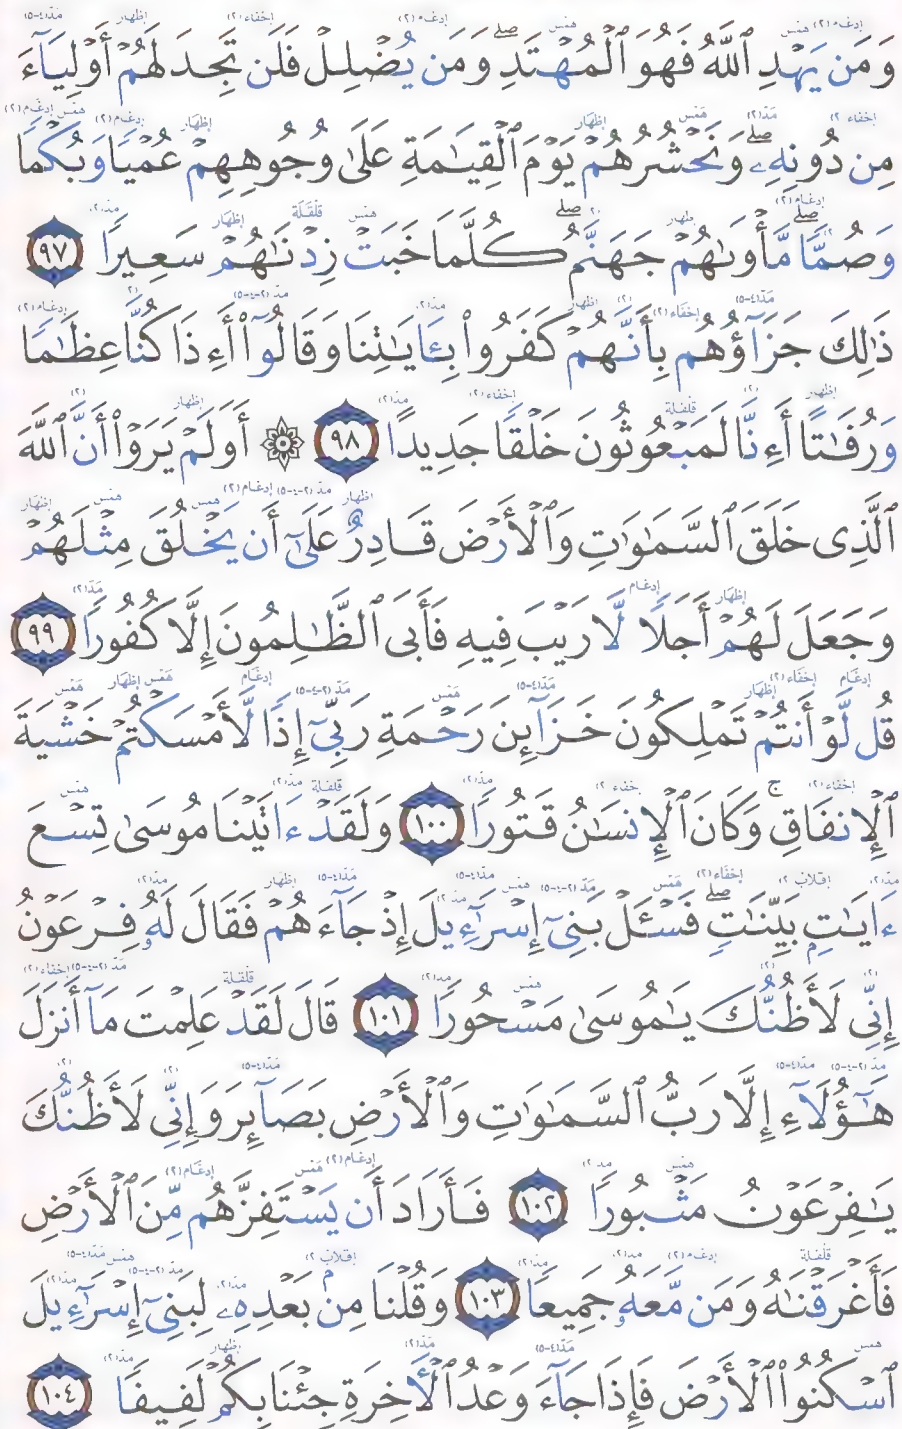 وَمَن يَهْدِ ٱللَّهُ فَهُوَ ٱلْمُهْتَدِ وَمَن يُضْلِلْ فَلَن تَجِدَ لَهُمْ أَوْلِيَآءَ
مِن دُونِهِۦ ۖ وَنَحْشُرُهُمْ يَوْمَ ٱلْقِيَـٰمَةِ عَلَىٰ وُجُوهِهِمْ عُمْيًا وَبُكْمًا
وَصُمًّا ۖ مَّأْوَىٰهُمْ جَهَنَّمُ ۖ كُلَّمَا خَبَتْ زِدْنَـٰهُمْ سَعِيرًا ٩٧
ذَٰلِكَ جَزَآؤُهُم بِأَنَّهُمْ كَفَرُوا۟ بِـَٔايَـٰتِنَا وَقَالُوٓا۟ أَءِذَا كُنَّا عِظَـٰمًا
وَرُفَـٰتًا أَءِنَّا لَمَبْعُوثُونَ خَلْقًا جَدِيدًا ٩٨ ۞ أَوَلَمْ يَرَوْا۟ أَنَّ ٱللَّهَ
ٱلَّذِى خَلَقَ ٱلسَّمَـٰوَٰتِ وَٱلْأَرْضَ قَادِرٌ عَلَىٰٓ أَن يَخْلُقَ مِثْلَهُمْ
وَجَعَلَ لَهُمْ أَجَلًا لَّا رَيْبَ فِيهِ فَأَبَى ٱلظَّـٰلِمُونَ إِلَّا كُفُورًا ٩٩
قُل لَّوْ أَنتُمْ تَمْلِكُونَ خَزَآئِنَ رَحْمَةِ رَبِّىٓ إِذًا لَّأَمْسَكْتُمْ خَشْيَةَ
ٱلْإِنفَاقِ ۚ وَكَانَ ٱلْإِنسَـٰنُ قَتُورًا ١٠٠ وَلَقَدْ ءَاتَيْنَا مُوسَىٰ تِسْعَ
ءَايَـٰتٍۭ بَيِّنَـٰتٍ ۖ فَسْـَٔلْ بَنِىٓ إِسْرَٰٓءِيلَ إِذْ جَآءَهُمْ فَقَالَ لَهُۥ فِرْعَوْنُ
إِنِّى لَأَظُنُّكَ يَـٰمُوسَىٰ مَسْحُورًا ١٠١ قَالَ لَقَدْ عَلِمْتَ مَآ أَنزَلَ
هَـٰٓؤُلَآءِ إِلَّا رَبُّ ٱلسَّمَـٰوَٰتِ وَٱلْأَرْضِ بَصَآئِرَ وَإِنِّى لَأَظُنُّكَ
يَـٰفِرْعَوْنُ مَثْبُورًا ١٠٢ فَأَرَادَ أَن يَسْتَفِزَّهُم مِّنَ ٱلْأَرْضِ
فَأَغْرَقْنَـٰهُ وَمَن مَّعَهُۥ جَمِيعًا ١٠٣ وَقُلْنَا مِنۢ بَعْدِهِۦ لِبَنِىٓ إِسْرَٰٓءِيلَ
ٱسْكُنُوا۟ ٱلْأَرْضَ فَإِذَا جَآءَ وَعْدُ ٱلْـَٔاخِرَةِ جِئْنَا بِكُمْ لَفِيفًا ١٠٤